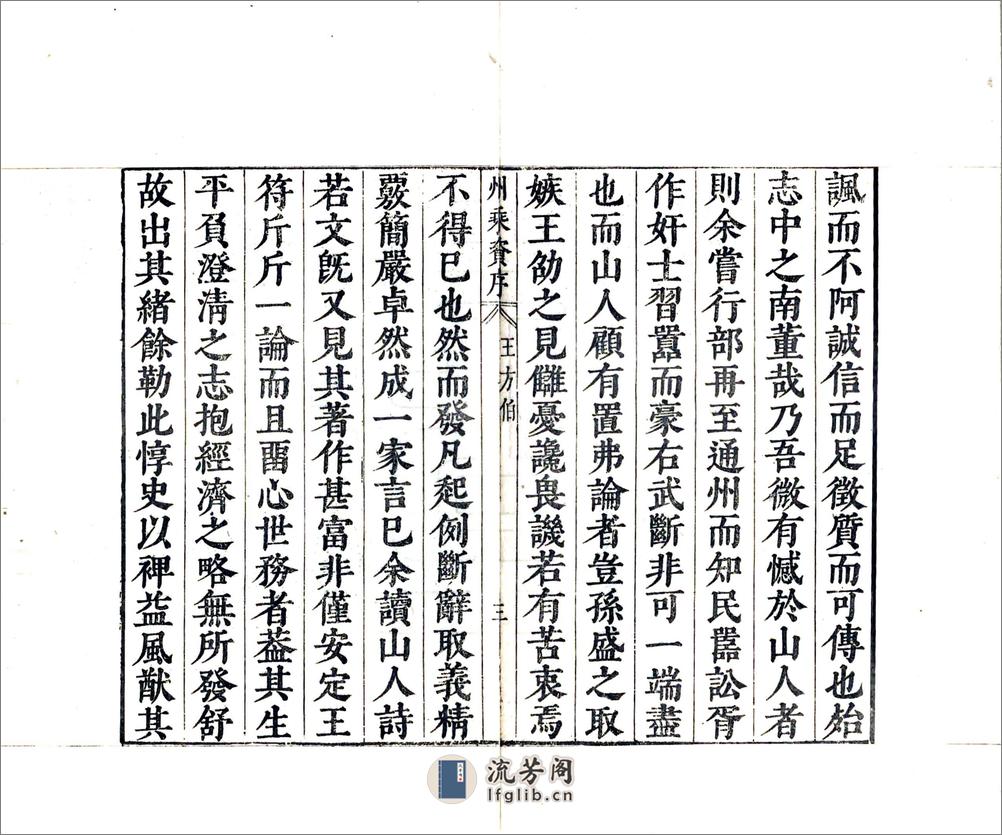 諷而不阿誠信而足徵質而可傳也始
志中之南董哉乃吾微有憾於山人者
則余嘗行部再至通州而知民嚚訟胥
作奸士習囂而豪右武斷非可一端盡
也而山人顧有置弗論者豈孫盛之取
嫉王劭之見讎憂讒畏譏若有苦衷焉
州乘資序 王方伯 三
不得已也然而發凡起例斷辭取義精
覈簡嚴卓然成一家言已余讀山人詩
若文旣又見其著作甚富非僅安定王
符斤斤一論而且畱心世務者葢其生
平負澄清之志抱經濟之略無所發舒
故出其緒餘勒此惇史以裨益風猷其
流芳阁
lfglib.cn